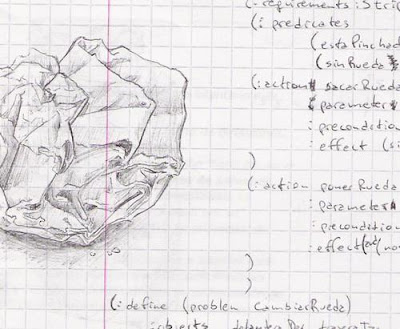 (:requirements :Stri
(: predicates
(estaPinchad
(sinRueda
(:action sacarRueda
: parameter
: precondition
: effect (si
)
(:action ponerRueda
: parameter
: precondition
: effect (and (no
)
)
(:define (problem CambiarRueda)